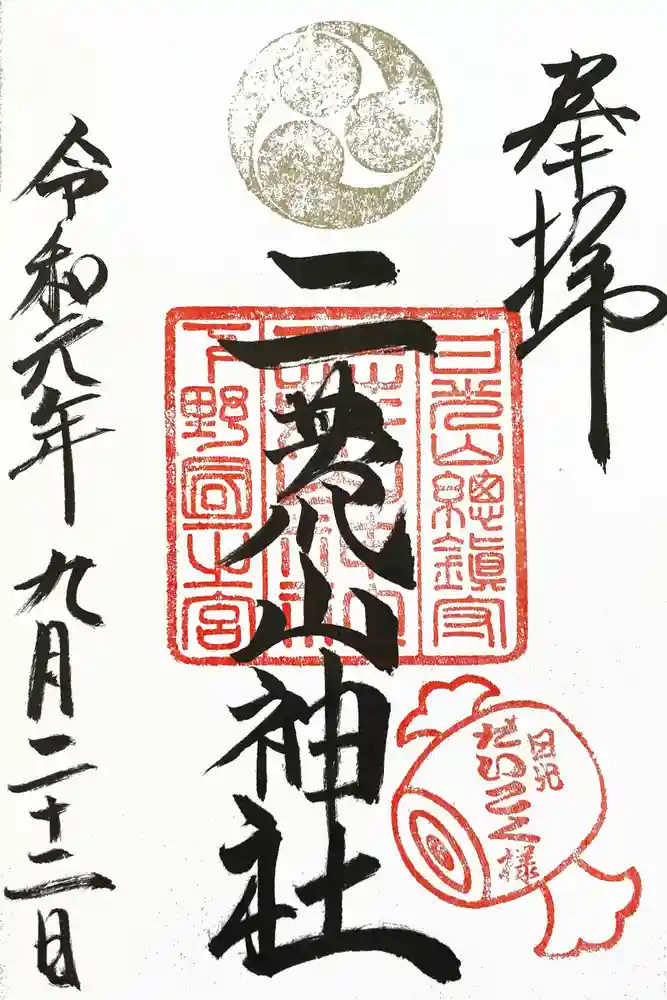 奉拝
二荒山神社
日光山總鎮守
下野國一之宮
日光
だいこく様
令和元年
九月二十二日